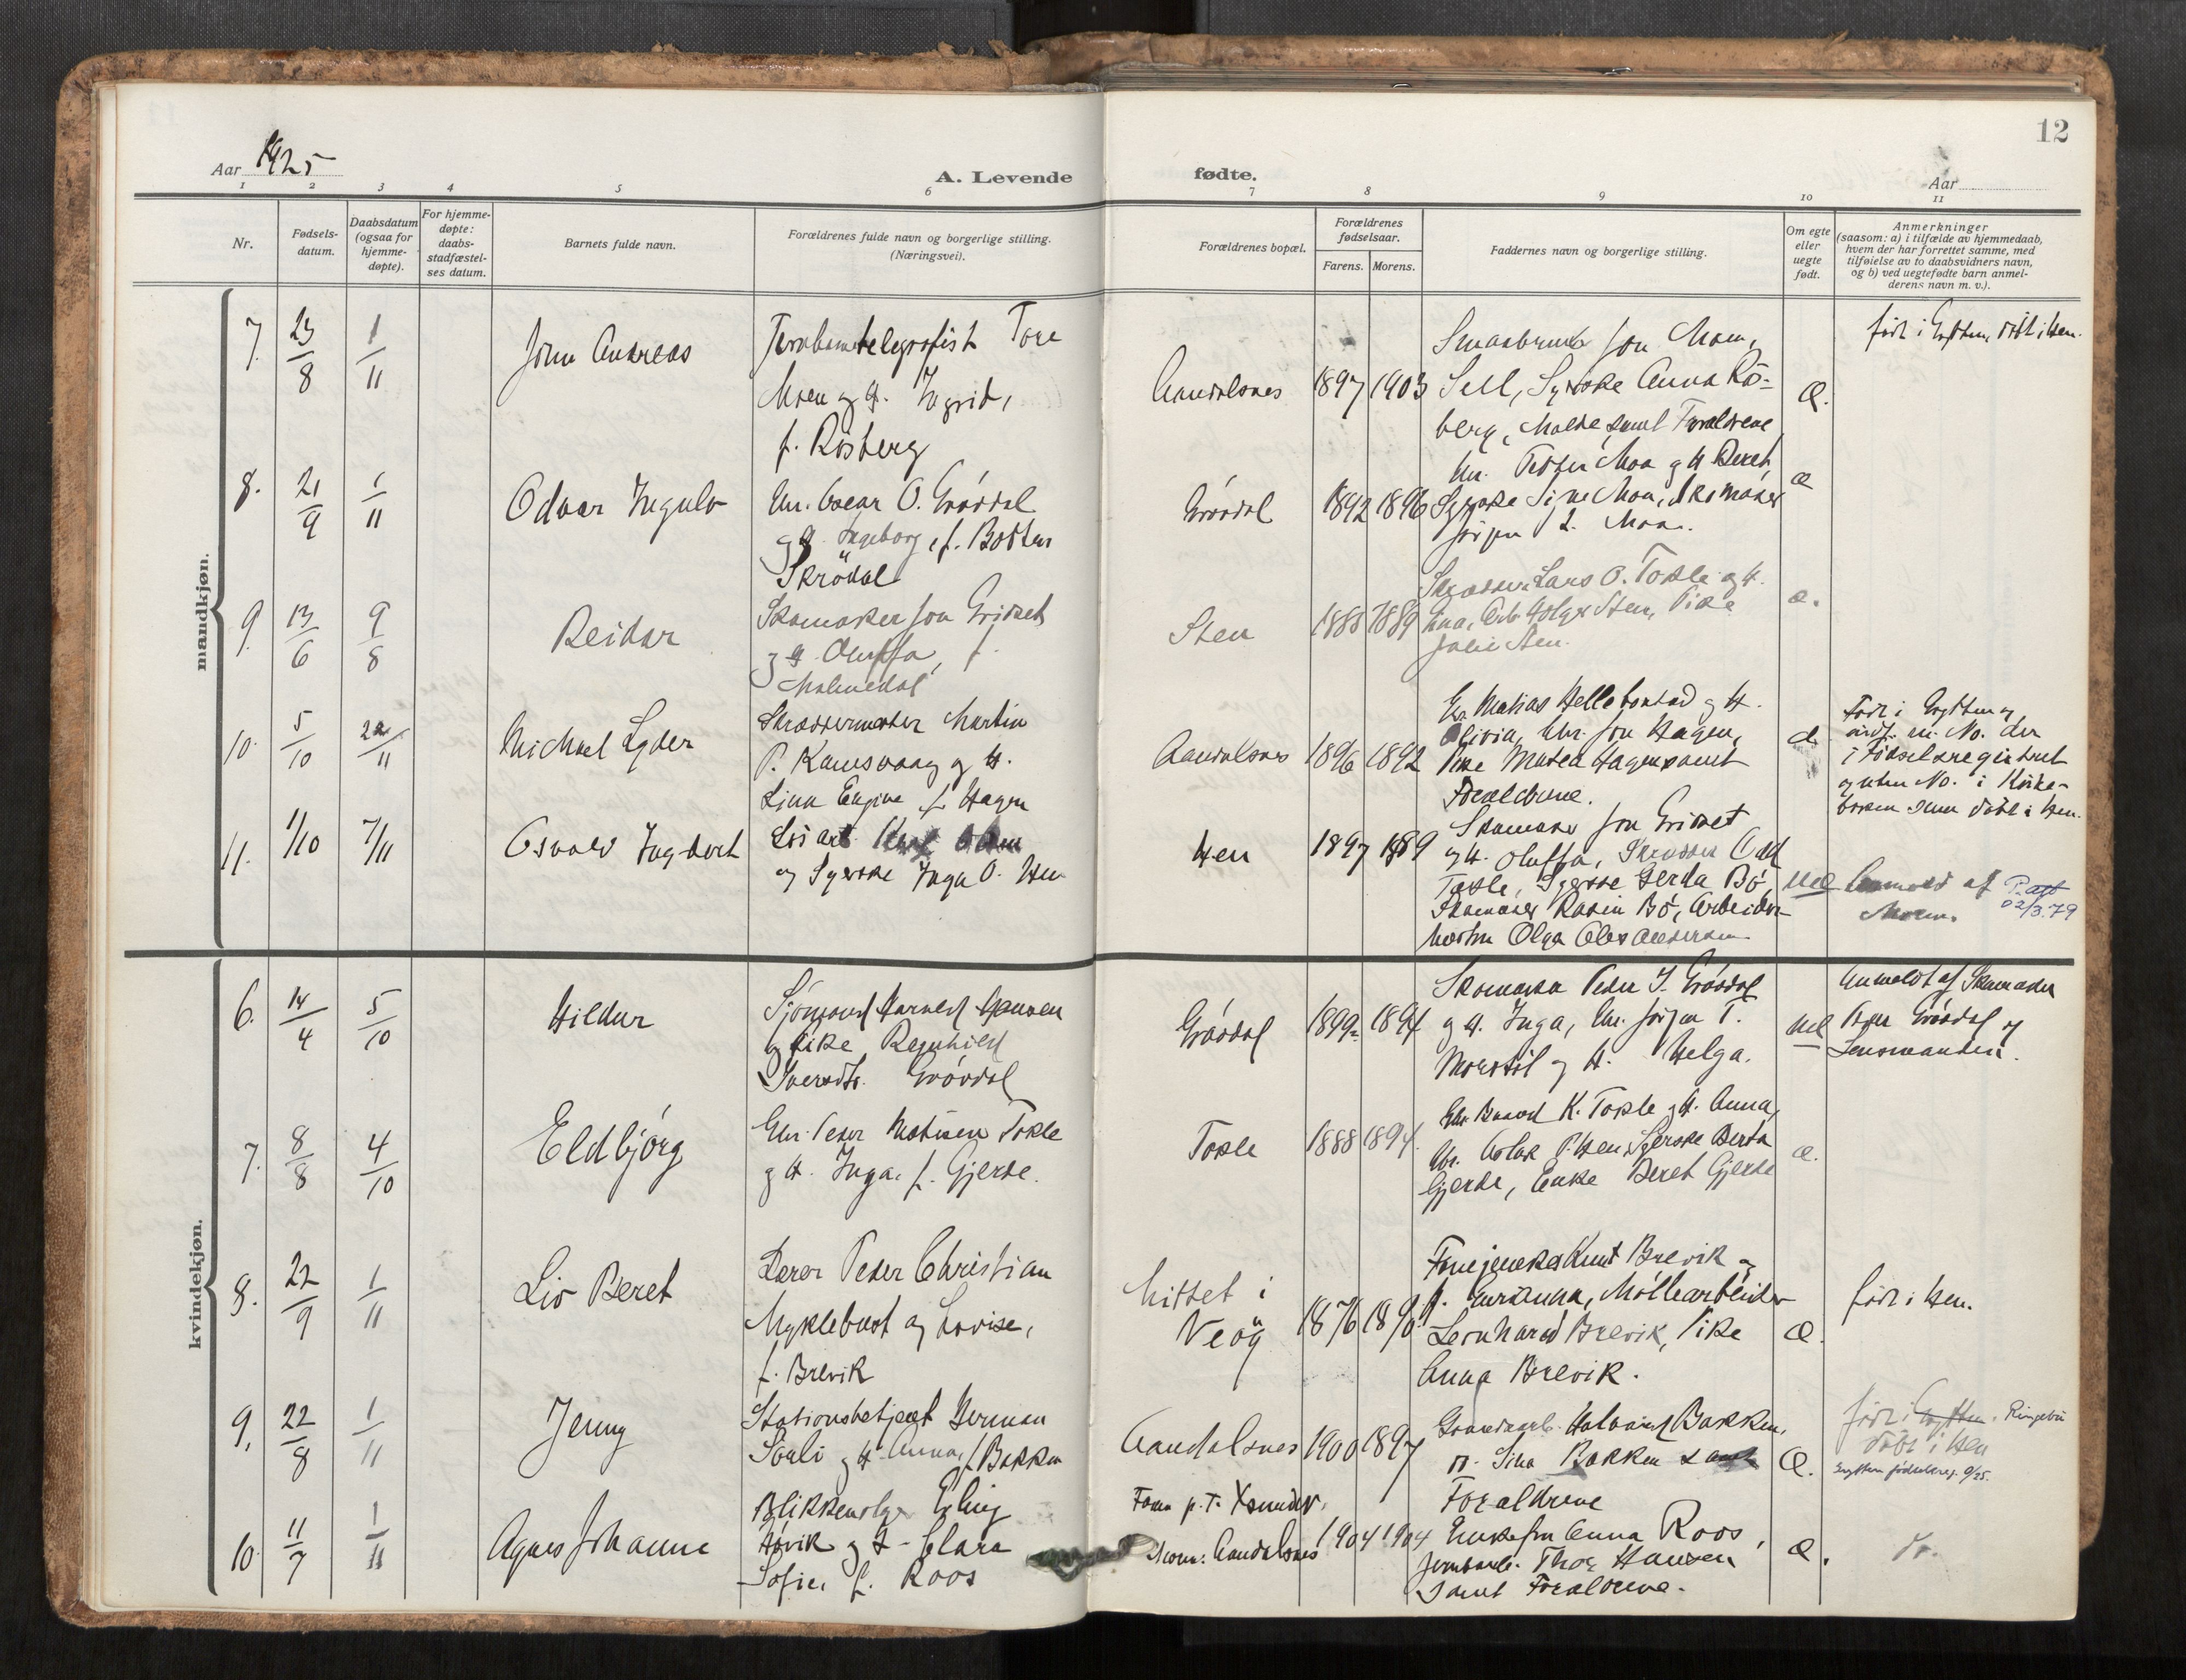 12
Aar 1925
A. Levende
fødte.
Aar
1 2 3 4 5 6 7 8 9 10 11
Nr.
Fødsels-
datum.
Daabsdatum
(ogsaa for
hjemme-
døpte).
For hjemme-
døpte:
daabs-
stadfæstel-
ses datum.
Barnets fulde navn.
Forældrenes fulde navn og borgerlige stilling.
(Næringsvei).
Forældrenes bopæl.
Forældrenes
fødselsaar.
Farens. Morens.
Faddernes navn og borgerlige stilling.
Om egte
eller
uegte
født.
Anmerkninger
(saasom: a) i tilfælde av hjemmedaab,
hvem der har forrettet samme, med
tilføielse av to daabsvidners navn,
og b) ved uegtefødte barn anmel-
derens navn m. v.).
mandkjøn.
7. 23/8 1/11
John Andreas
Jernbanetelegrafist Tore
Moen og H. Ingrid,
f. Rösberg
Aandalsnes 1897 1903
Smaabruker Jon Moen,
Sell, Syerske Anna Rös-
berg, Molde samt Forældrene
Æ.
født i Grytten, døbt i Hen.
8. 21/9 1/11
Odvar Ingulv
Gm. Oscar O. Grövdal
og H. Ingeborg, f. Botten
Skrödal
Grövdal 1892 1896
Gm. Petter Moa og H. Beret,
Syerske Sine Moa, Skomaker
Jörgen L. Moa.
æ
9. 13/6 9/8
Reidar
Skomaker Jon Griset
og H. Oluffa, f.
Malmedal
Sten 1888 1889
Skrædder Lars O. Tokle og H.
Ena, Arb. Holger Sten, Pike
Julie Sten.
æ.
10. 5/10 22/11
Michael Lyder
Skræddermester Martin
P. Kamsvaag og H.
Lina Engine f. Hagen
Aandalsnes 1896 1892
Matias Hellebostad og H.
Olivia, Gm. Jon Hagen,
Pike Matea Hagen samt
Forældrene.
æ
Født i Grytten og
indf. m. No. der
i Födselsregistret
og uten No. i Kirke-
boken som døbt i Hen.
11. 1/10 7/11
Osvald Ingebert
Lösarb.
og Syerske Inga O. Hen
Hen 1897 1889
Skomaker Jon Griset
og H. Oluffa, Skrædder Odd
Tokle, Syerske Gerda Bö,
Skomaker Rasin Bö, Arbeider-
Olga Olea Andersen
Ue
Anmeldt af
Moren.
P.att
02/3.79
kvindekjøn.
6. 14/4 5/10
Hildur
Sjömand Harald Hansen
og Pike Ragnhild
Iversdtr. Grövdal
Grövdal 1899 1894
Skomaker Peder I. Grövdal
og H. Inga, Gm. Jörgen T.
Morstöl og H. Helga.
Ue
Anmeldt af Skomaker
Peder Grövdal og
Lensmanden.
7. 8/8 4/10
Eldbjörg
Gm. Peder Matisen Tokle
og H. Inga. f. Gjerde.
Tokle 1888 1894
K. Tokle og H. Anna,
Gm. Aslak P. Hen, Syerske Berta
Gjerde, Enke Beret Gjerde
æ.
8. 22/9 1/11
Liv Beret
Lærer Peder Christian
Myklebust og Lovise,
f. Brevik
Mittet i
Veöy 1876 1890
Knut Brevik og
H. Gurianna, Möllearbeider
Leonhard Brevik, Pike
Anna Brevik.
Æ.
født i Hen.
9. 22/8 1/11
Jenny
Stationsbetjent Herman
Sörli og H. Anna, f. Bakken
Aandalsnes 1900 1897
Halvard Bakken,
Sina Bakken samt
Forældrene
Æ.
født i Grytten. Ringebu
døbt i Hen
Grytten fødselsreg. 9/25.
10. 11/7 1/11
Agnes Johanne
Blikkenslager Erling
Hövik og H. Clara
Sofie, f. Roos
Faren p.t. Xsund.
Moren: Aandalsnes 1904 1904
Enkefru Anna Roos,
Jernbarb. Thor Hansen
samt Forældrene.
Æ.
do.